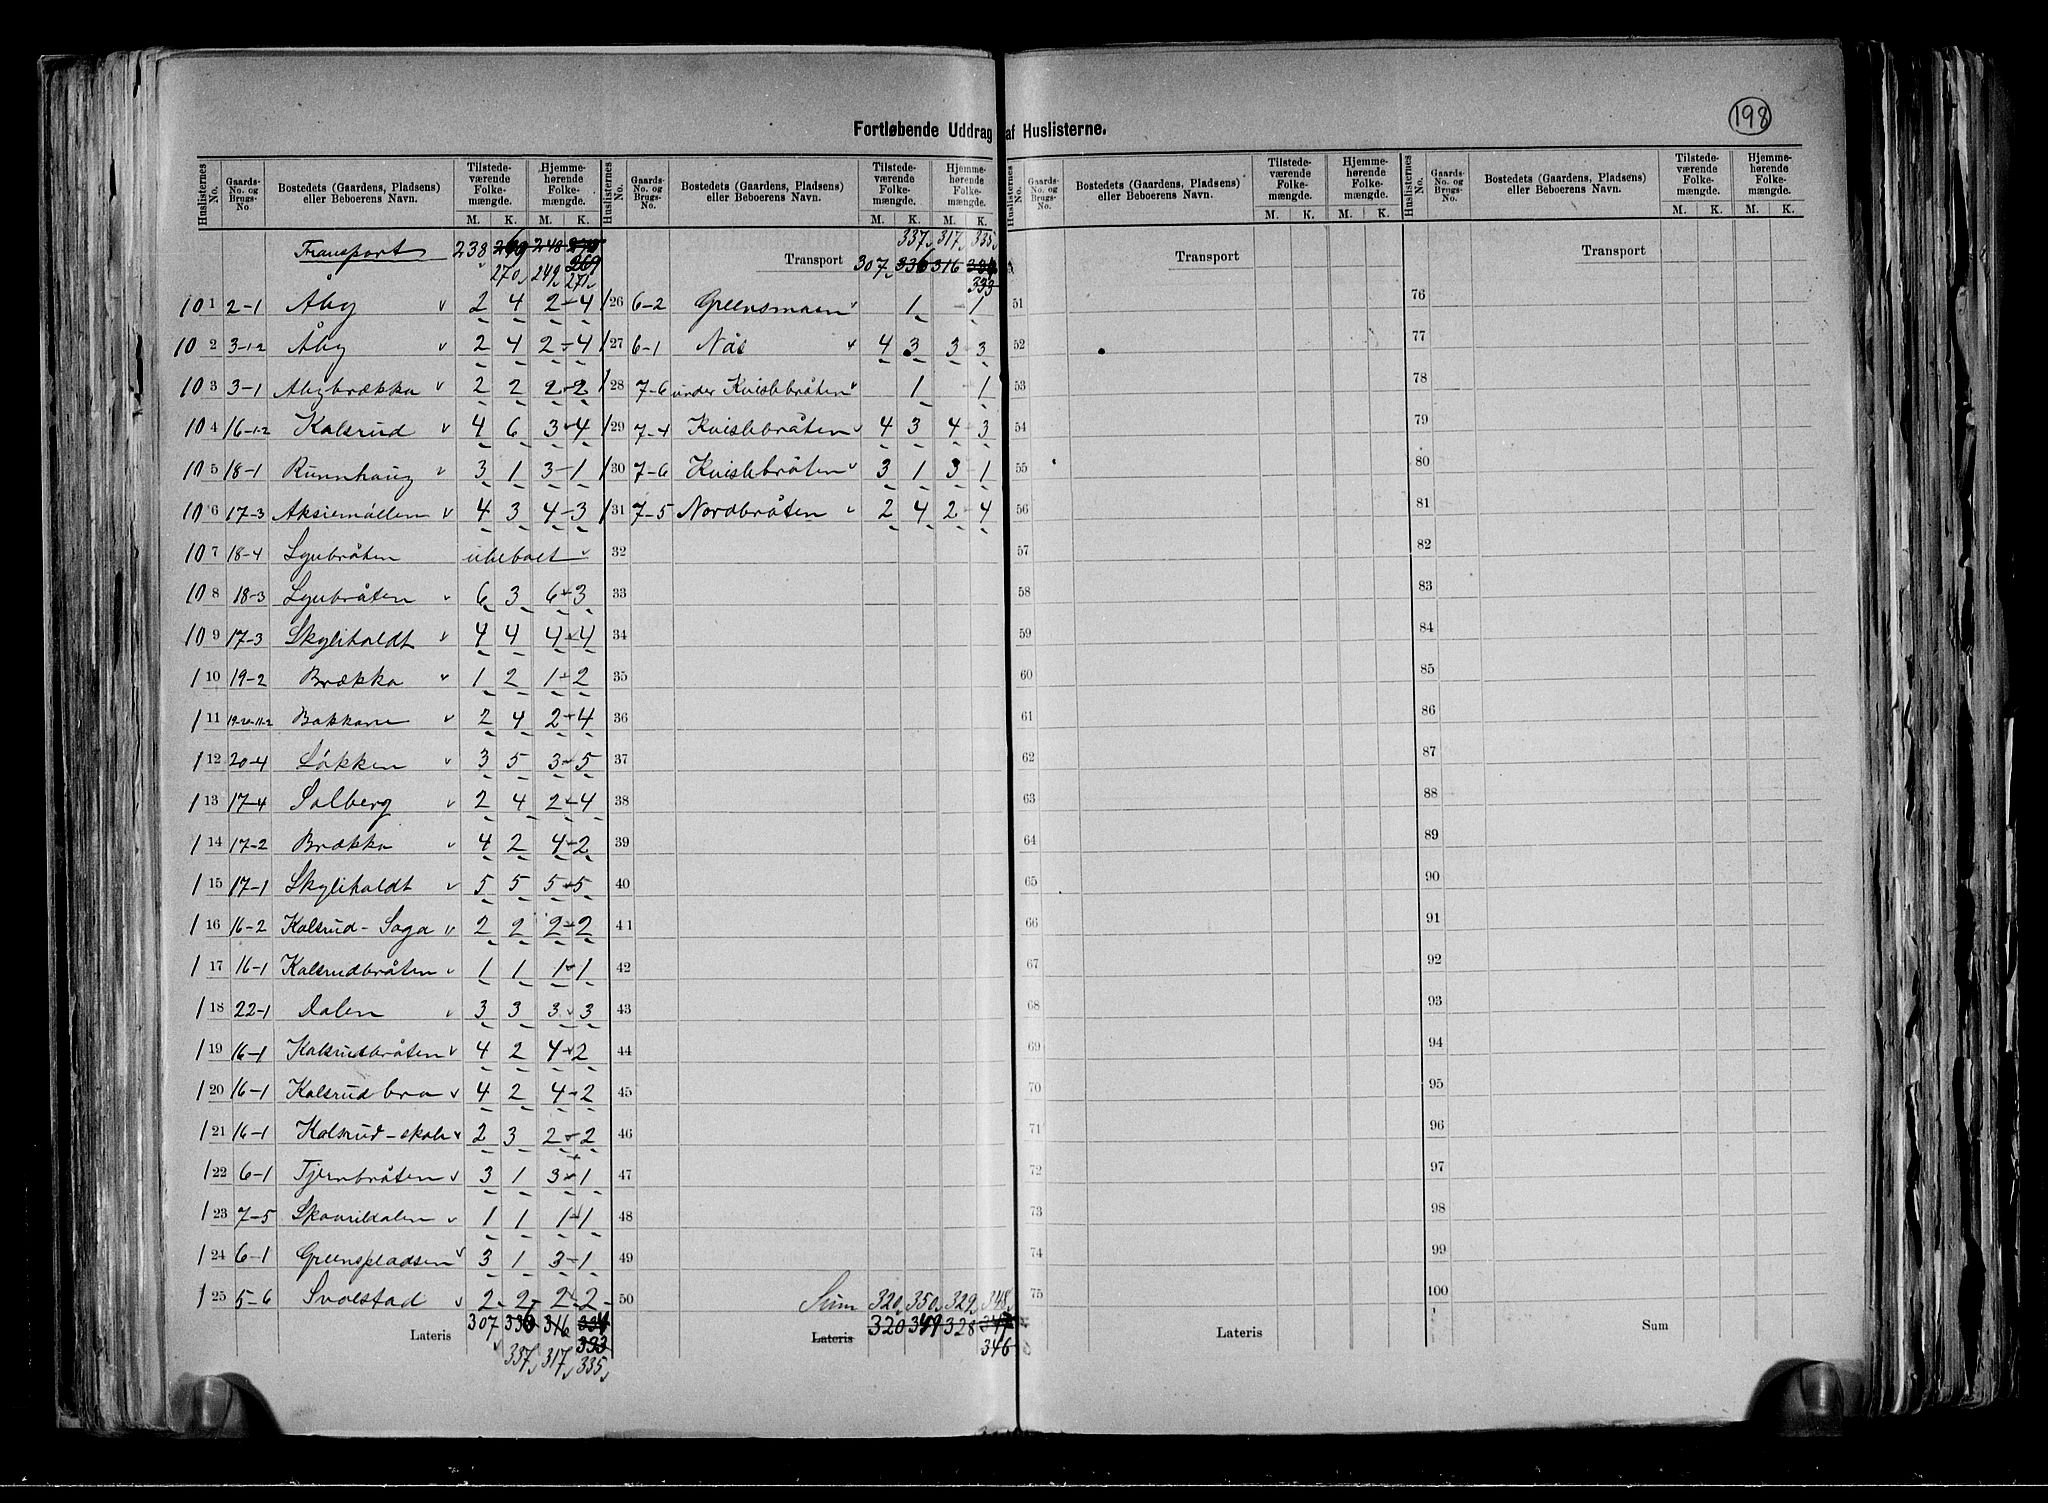 198
Fortløbende Uddrag af Huslisterne.
Huslisternes No. Gaards-No. og Brugs-No. Bostedets (Gaardens, Pladsens) eller Beboerens Navn. Tilstedeværende Folkemængde. M. K. Hjemmehørende Folkemængde. M. K.
Transport 238 248
270 249 269
271
101 2-1 Åby 2 4 2-4
102 3-1-2 Åby 2 4 2-4
103 3-1 Åbybrækka 2 2 2-2
104 16-1-2 Kalsrud 4 6 3-4
105 18-1 Runnhaug 3 1 3-1
106 17-3 Aksiemållen 4 3 4-3
107 18-4 Lyubråten ubeboet
108 18-3 Lyubråten 6 3 6-3
109 17-3 Skyliholdt 4 4 4-4
110 19-2 Brækka 1 2 1-2
111 Bakkane 2 4 2-4
112 20-4 Løkken 3 5 3-5
113 17-4 Solberg 2 4 2-4
114 17-2 Brækka 4 2 4-2
115 17-1 Skyliholdt 5 5 5-5
116 16-2 Kalsrud-Saga 2 2 2-2
117 16-1 Kalsrudbråten 1 1 1-1
118 22-1 Dalen 3 3 3 3
119 16-1 Kalsrudbråten 4 2 4-2
120 16-1 Kalsrud bra 4 2 4-2
121 16-1 Kalsrud-skole 2 3 2-2
122 6-1 Tjernbråten 3 1 3-1
123 7-5 1 1 1-1
124 6-1 Greenspladsen 3 1 3-1
125 5-6 Svalstad 2-2-2-2-
Lateris 307 336 316 334
333
337 317 335
Huslisternes No. Gaards-No. og Brugs-No. Bostedets (Gaardens, Pladsens) eller Beboerens Navn. Tilstedeværende Folkemængde. M. K. Hjemmehørende Folkemængde. M. K.
337 317 335
Transport 307 336 316 334
333
126 6-2 Greensmoen 1 -1
127 6-1 Nås 4 3 3-3
128 7-6 under Kvislebråten 1 -1
129 7-4 Kvislebråten 4 3 4-3
130 7-6 Kvislebråten 3 1 3-1
131 7-5 Nordbråten 2 4 2-4
32
33
34
35
36
37
38
39
40
41
42
43
44
45
46
47
48
49
50 Sum 320 350 329 348
Lateris 320 349 328 347
346
Huslisternes No. Gaards-No. og Brugs-No. Bostedets (Gaardens, Pladsens) eller Beboerens Navn. Tilstedeværende Folkemængde. M. K. Hjemmehørende Folkemængde. M. K.
Transport
51
52
53
54
55
56
57
58
59
60
61
62
63
64
65
66
67
68
69
70
71
72
73
74
75
Lateris
Huslisternes No. Gaards-No. og Brugs-No. Bostedets (Gaardens, Pladsens) eller Beboerens Navn. Tilstedeværende Folkemængde. M. K. Hjemmehørende Folkemængde. M. K.
Transport
76
77
78
79
80
81
82
83
84
85
86
87
88
89
90
91
92
93
94
95
96
97
98
99
100
Sum